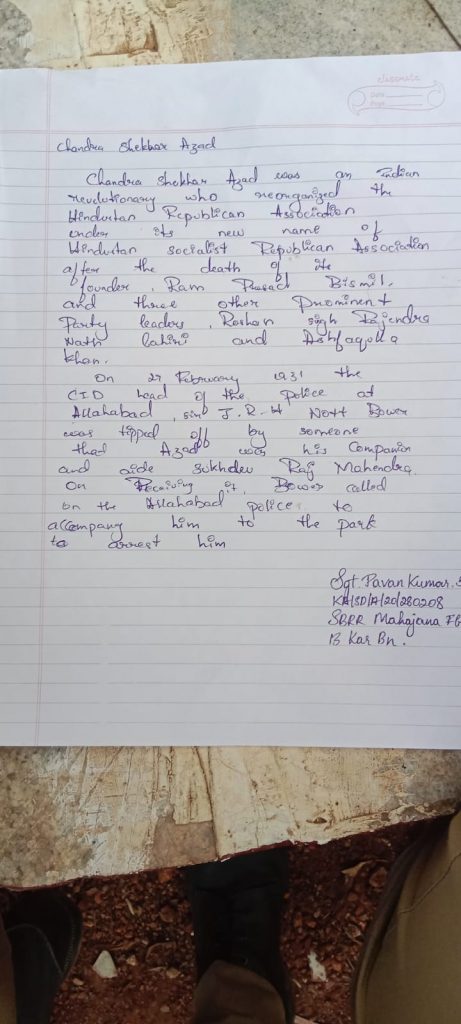 classmate
Date
Page
Chandra Shekhar Azad
Chandra Shekhar Azad was an Indian
revolutionary who reorganized the
Hindustan Republican Association
under its new name of
Hindustan socialist Republican Association
after the death of its
founder, Ram Prasad Bismil,
and three other prominent
Party leaders, Roshan singh Rajendra
Nath lahiri and Ashfaqulla
khan.
On 27 February 1931 the
CID head of the police at
Allahabad, sir J.R.H Nott Bower
was tipped off by someone
that Azad was his Companion
and aide Sukhdev Raj Mahendra.
On Receiving it, Bower called
on the Allahabad police to
accompany him to the park
to arrest him
Sgt. Pavan Kumar.
KA/SD/A/20/280208
SBRR Mahajana FG
13 Kar Bn.